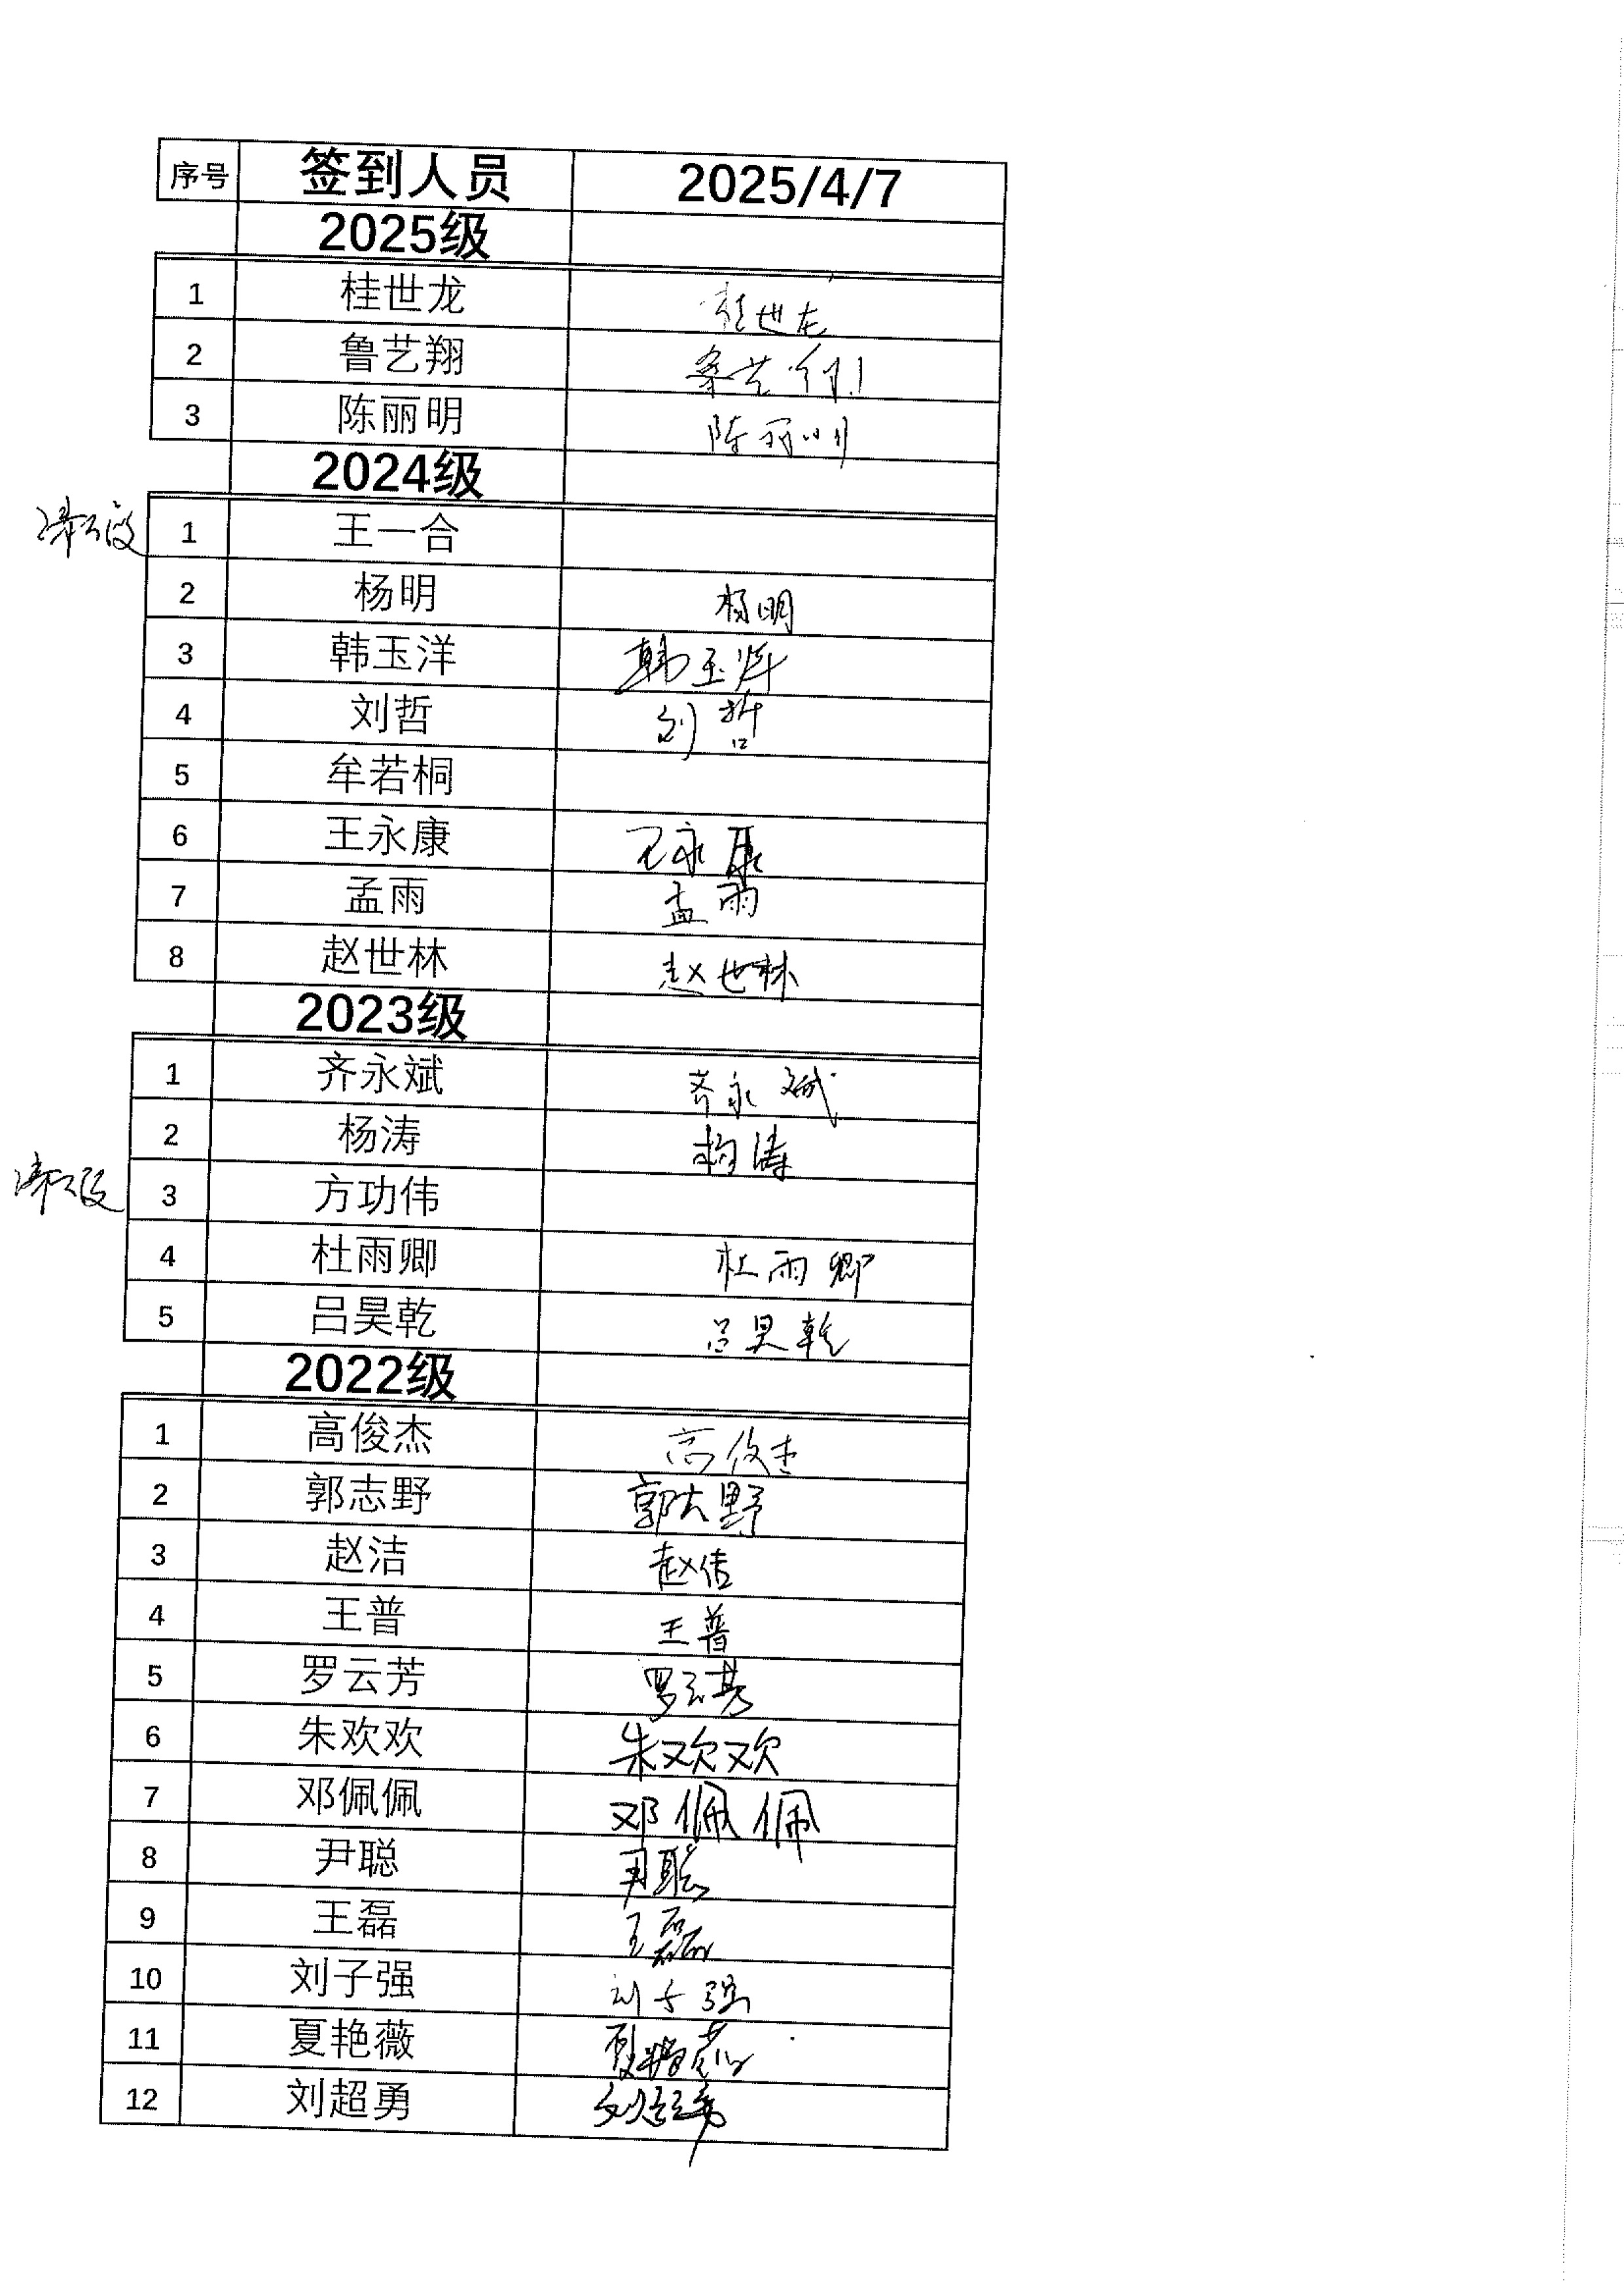 序号 签到人员 2025/4/7
2025级
1 桂世龙 桂世龙
2 鲁艺翔 鲁艺翔
3 陈丽明 陈丽明
2024级
1 王一合
2 杨明 杨明
3 韩玉洋 韩玉洋
4 刘哲 刘哲
5 牟若桐
6 王永康 王永康
7 孟雨 孟雨
8 赵世林 赵世林
2023级
1 齐永斌 齐永斌
2 杨涛 杨涛
3 方功伟
4 杜雨卿 杜雨卿
5 吕昊乾 吕昊乾
2022级
1 高俊杰 高俊杰
2 郭志野 郭志野
3 赵洁 赵洁
4 王普 王普
5 罗云芳 罗云芳
6 朱欢欢 朱欢欢
7 邓佩佩 邓佩佩
8 尹聪 尹聪
9 王磊 王磊
10 刘子强 刘子强
11 夏艳薇 夏艳薇
12 刘超勇 刘超勇